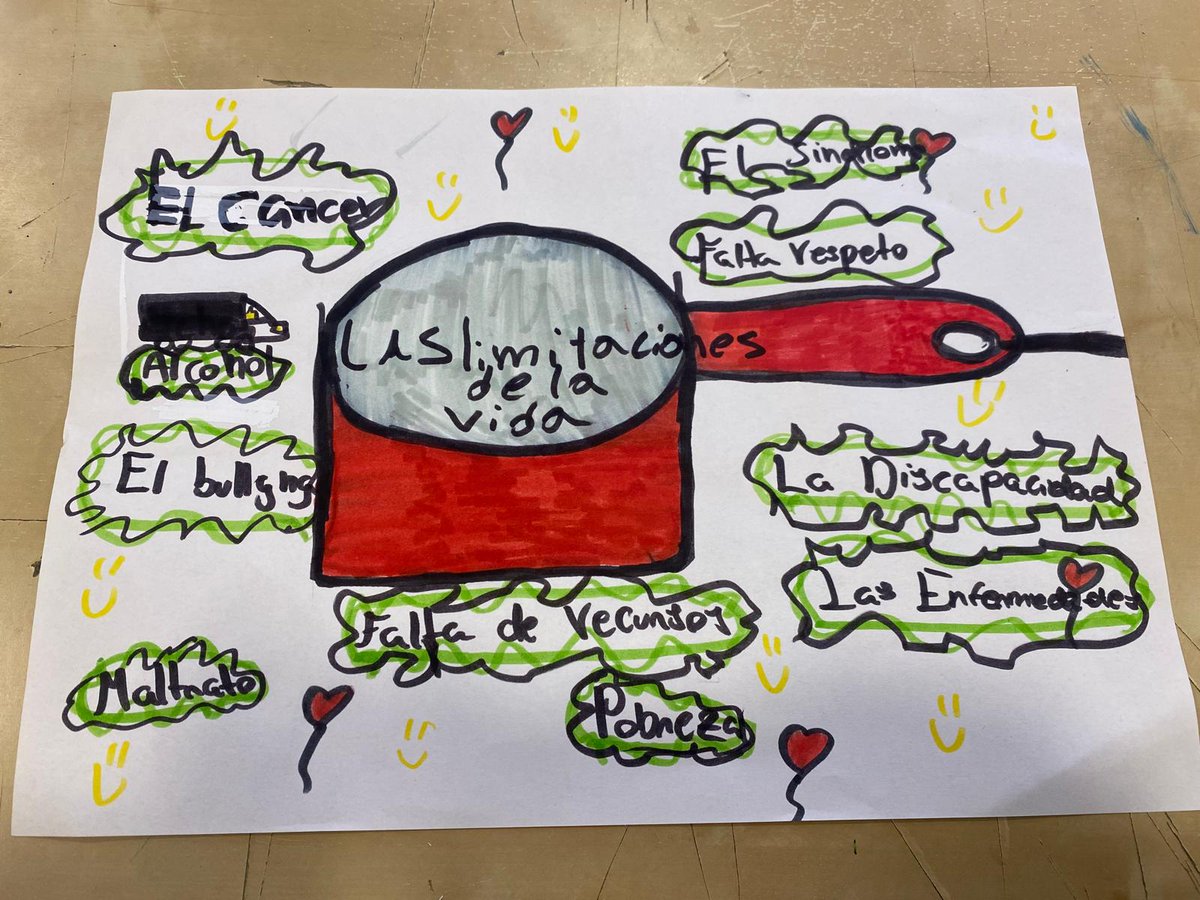 EL Cáncer
Alcohol
El bullying
Maltrato
LAS limitaciones
de la
vida
Falta de recursos
Pobreza
El Síndrome
Falta respeto
La Discapacidad
Las Enfermedades